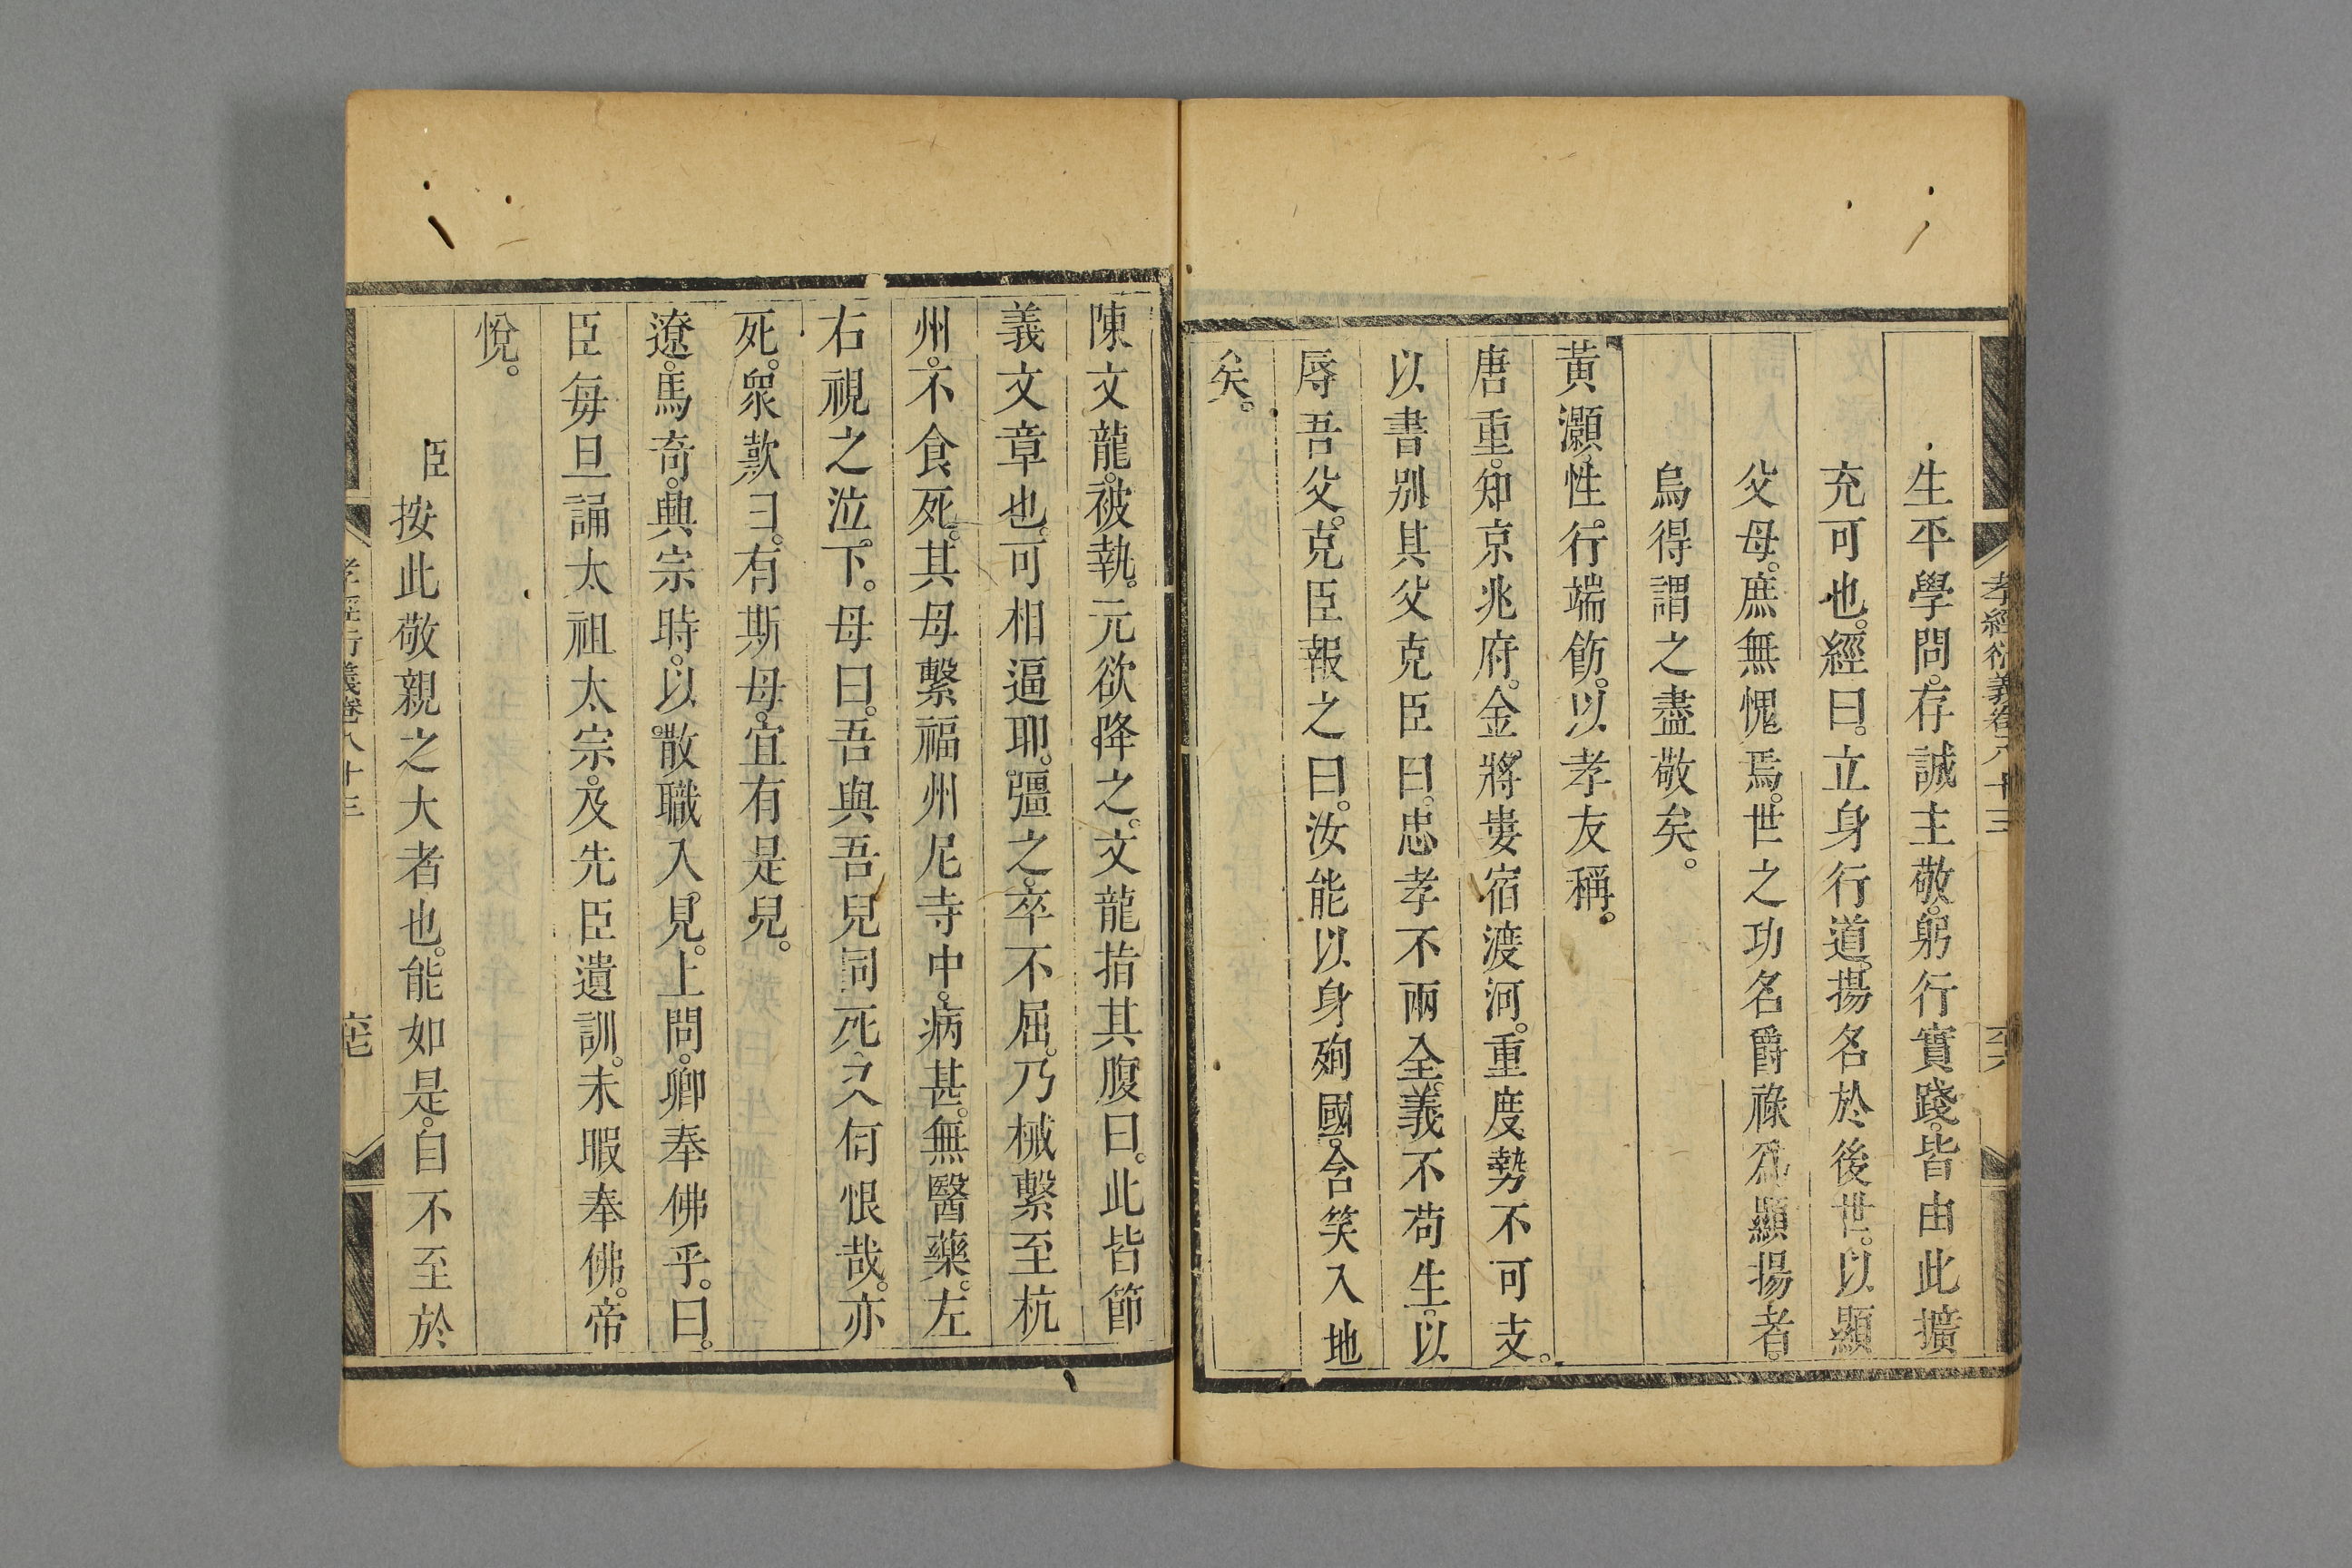 孝經衍義卷八十三
生平學問。存誠主敬。躬行實踐。皆由此擴
充可也。經曰。立身行道。揚名於後世。以顯
父母。庶無愧焉。世之功名爵祿爲顯揚者。
烏得謂之盡敬矣。
黃灝。性行端飭。以孝友稱。
唐重。知京兆府。金將婁宿渡河。重度勢不可支。
以書別其父克臣曰。忠孝不兩全。義不苟生。以
辱吾父。克臣報之曰。汝能以身殉國。含笑入地
矣。
陳文龍。被執。元欲降之。文龍指其腹曰。此皆節
義文章也。可相逼耶。彊之。卒不屈。乃械繫至杭
州。不食死。其母繫福州尼寺中。病甚。無醫藥。左
右視之泣下。母曰。吾與吾兒同死。又何恨哉。亦
死。衆歎曰。有斯母。宜有是兒。
遼。馬奇。典宗時。以散職入見。上問。卿奉佛乎。曰。
臣每旦誦太祖太宗。及先臣遺訓。未暇奉佛。帝
悅。
臣按此敬親之大者也。能如是。自不至於
孝經衍義卷八十三